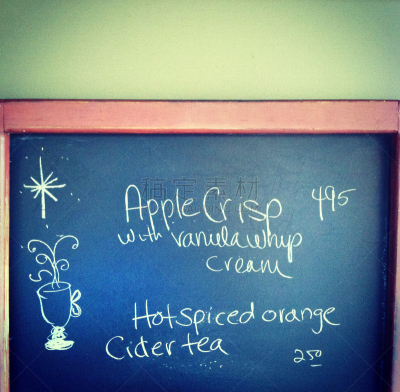 Apple Crisp 495
with vanilla whip
cream
Hot Spiced orange
Cider tea
250